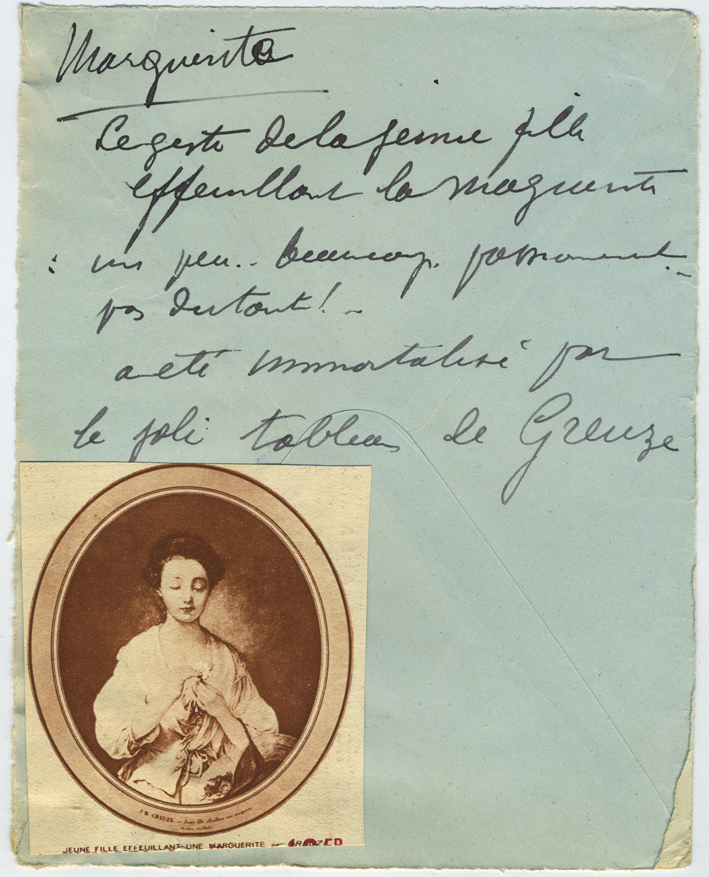 Marguerite
Le geste de la jeune fille
effeuillant la maguerite
: un peu.. beaucoup. passionnement..
pas du tout! -
a été immortalisé par
le joli tableau de Greuze
J-B GREUZE — Jeune fille effeuillant une marguerite
JEUNE FILLE EFFEUILLANT UNE MARGUERITE DE GREUZE